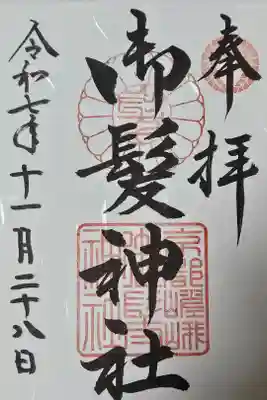 奉拝
御髪神社
令和七年十一月二十八日